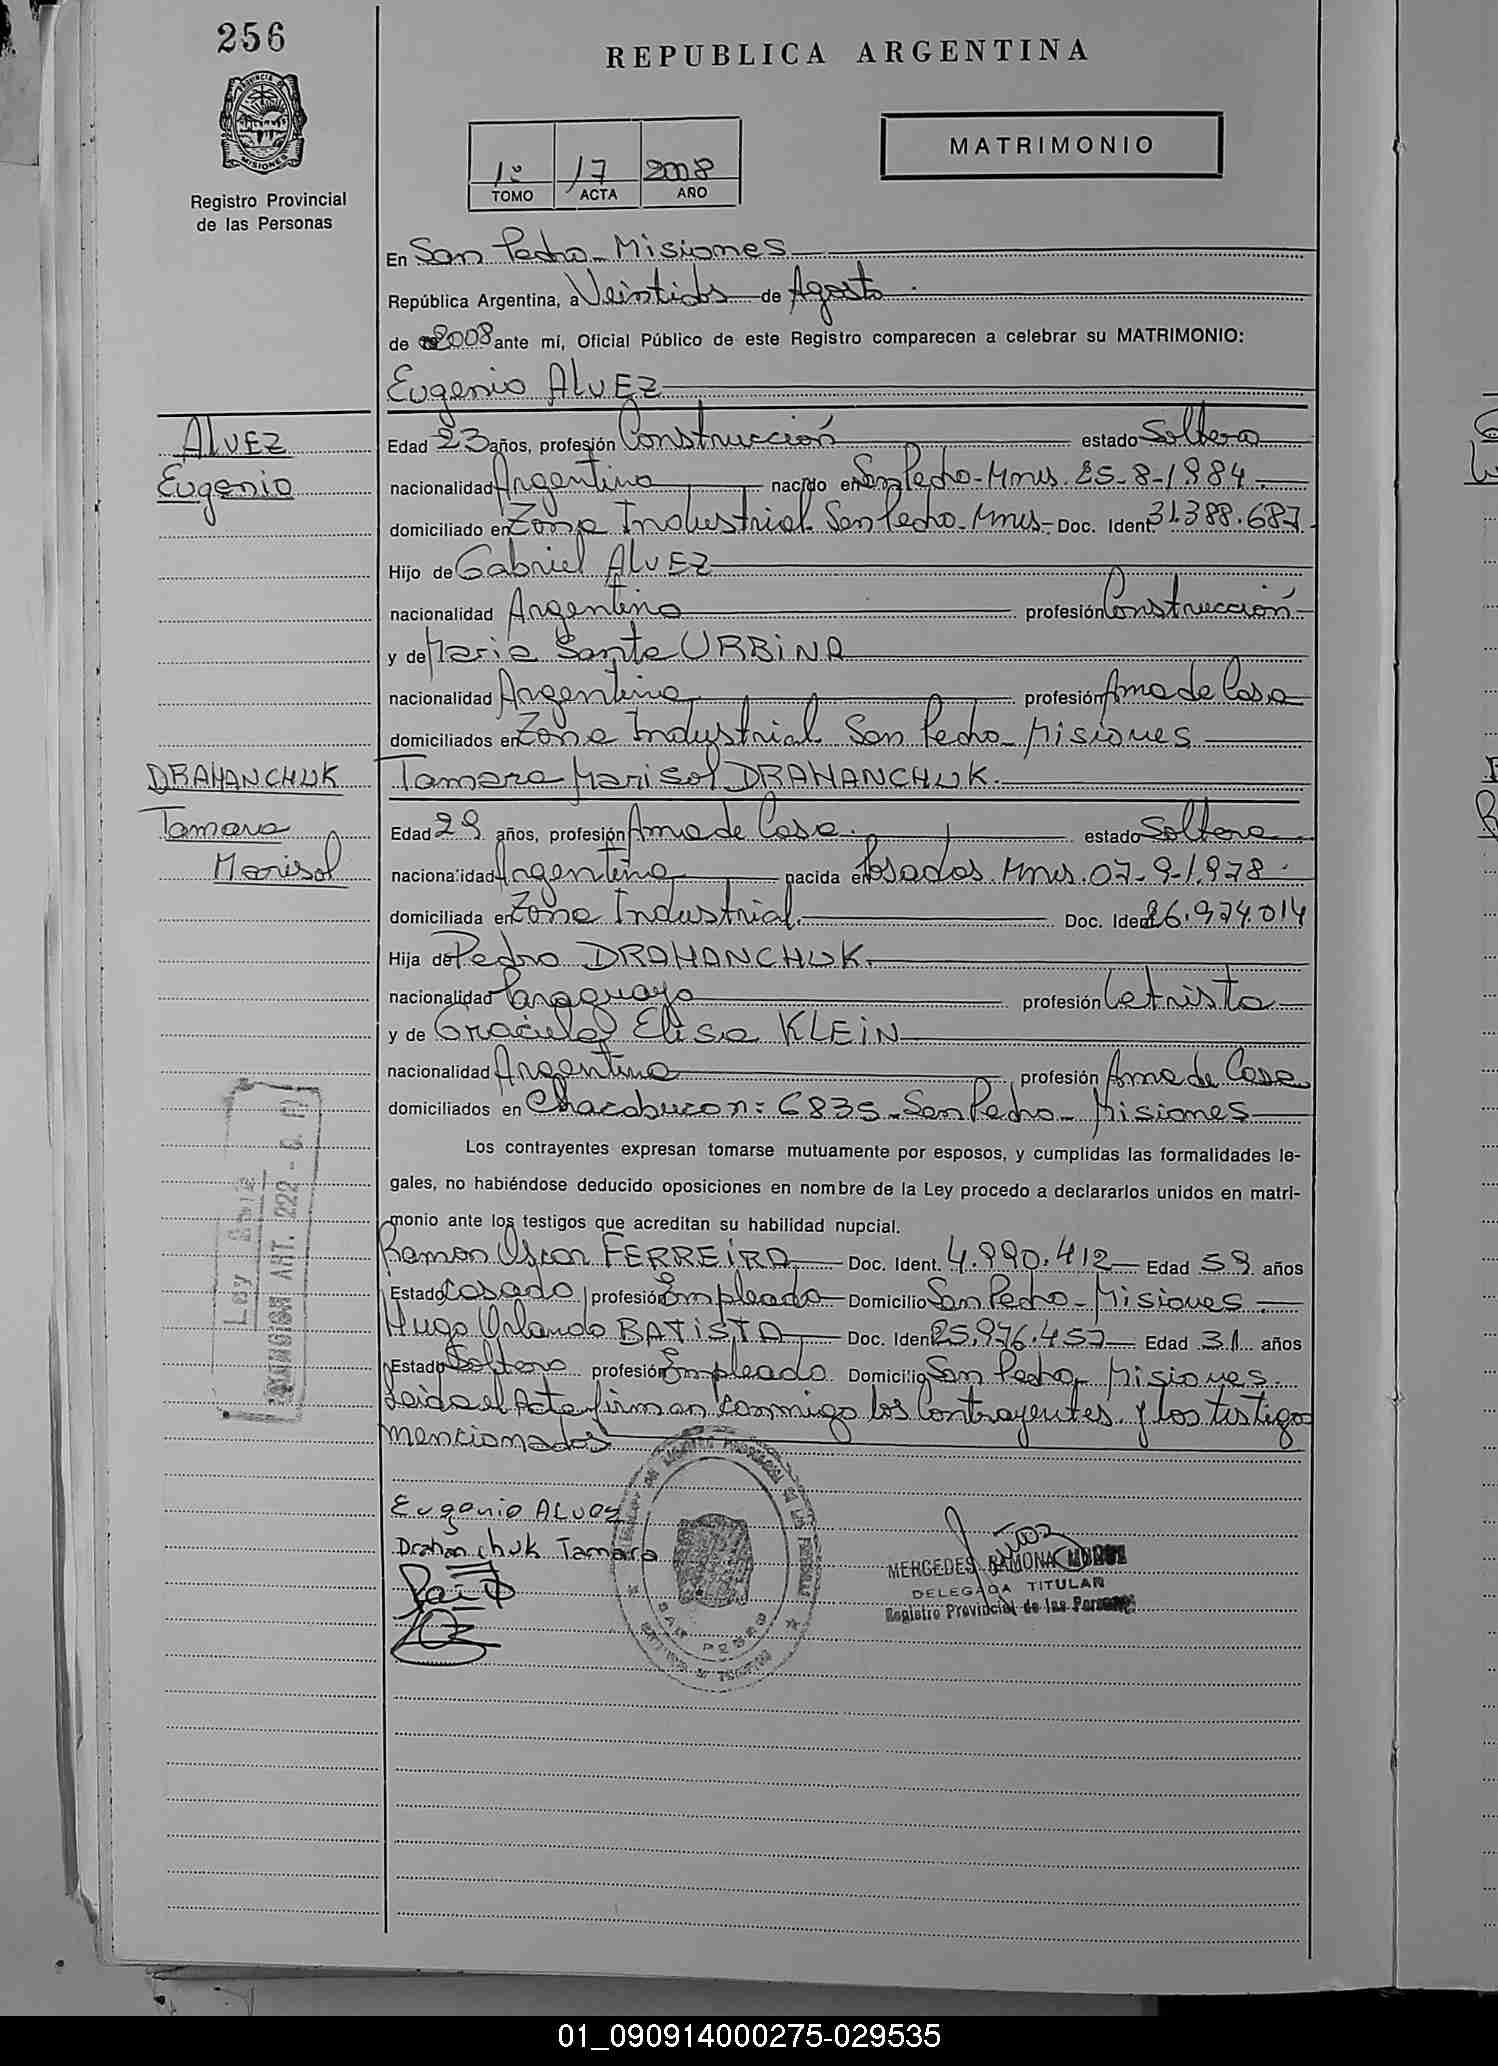 256
REPUBLICA ARGENTINA
PROVINCIA DE MISIONES
Registro Provincial
de las Personas
1º 17 2008
TOMO ACTA AÑO
MATRIMONIO
En San Pedro - Misiones
República Argentina, a Veintidos de Agosto
de 2008 ante mí, Oficial Público de este Registro comparecen a celebrar su MATRIMONIO:
Eugenio ALVEZ
ALVEZ
Eugenio
Edad 23 años, profesión Construcción estado Soltero
nacionalidad Argentino nacido en San Pedro - Mnes. 25-8-1984
domiciliado en Zona Industrial San Pedro - Mnes - Doc. Ident. 31.388.687
Hijo de Gabriel ALVEZ
nacionalidad Argentino profesión Construcción
y de Maria Santa URBINA
nacionalidad Argentina profesión Ama de Casa
domiciliados en Zona Industrial San Pedro - Misiones
DRAHANCHUK
Tamara
Marisol
Tamara Marisol DRAHANCHUK.
Edad 29 años, profesión Ama de Casa. estado Soltera
nacionalidad Argentina nacida en Posadas. Mnes. 07-9-1.978
domiciliada en Zona Industrial. Doc. Ident. 26.974.014
Hija de Pedro DRAHANCHUK.
nacionalidad Paraguayo profesión Letrista
y de Graciela Elisa KLEIN
nacionalidad Argentina profesión Ama de Casa
domiciliados en Chacabuco nº: 6835 - San Pedro - Misiones
Los contrayentes expresan tomarse mutuamente por esposos, y cumplidas las formalidades le-
gales, no habiéndose deducido oposiciones en nombre de la Ley procedo a declararlos unidos en matri-
monio ante los testigos que acreditan su habilidad nupcial.
Ramon Oscar FERREIRA Doc. Ident. 4.990.412 Edad 59 años
Estado Casado profesión Empleado Domicilio San Pedro - Misiones
Hugo Orlando BATISTA Doc. Ident. 25.976.457 Edad 31 años
Estado Soltero profesión Empleado Domicilio San Pedro - Misiones
Leida el Acta firman conmigo los Contrayentes y los testigos
mencionados
Ley
ART. 222
Eugenio ALVEZ
Drahanchuk Tamara
SAN PEDRO
MERCEDES RAMONA
DELEGADA TITULAR
Registro Provincial de las Personas
01_090914000275-029535